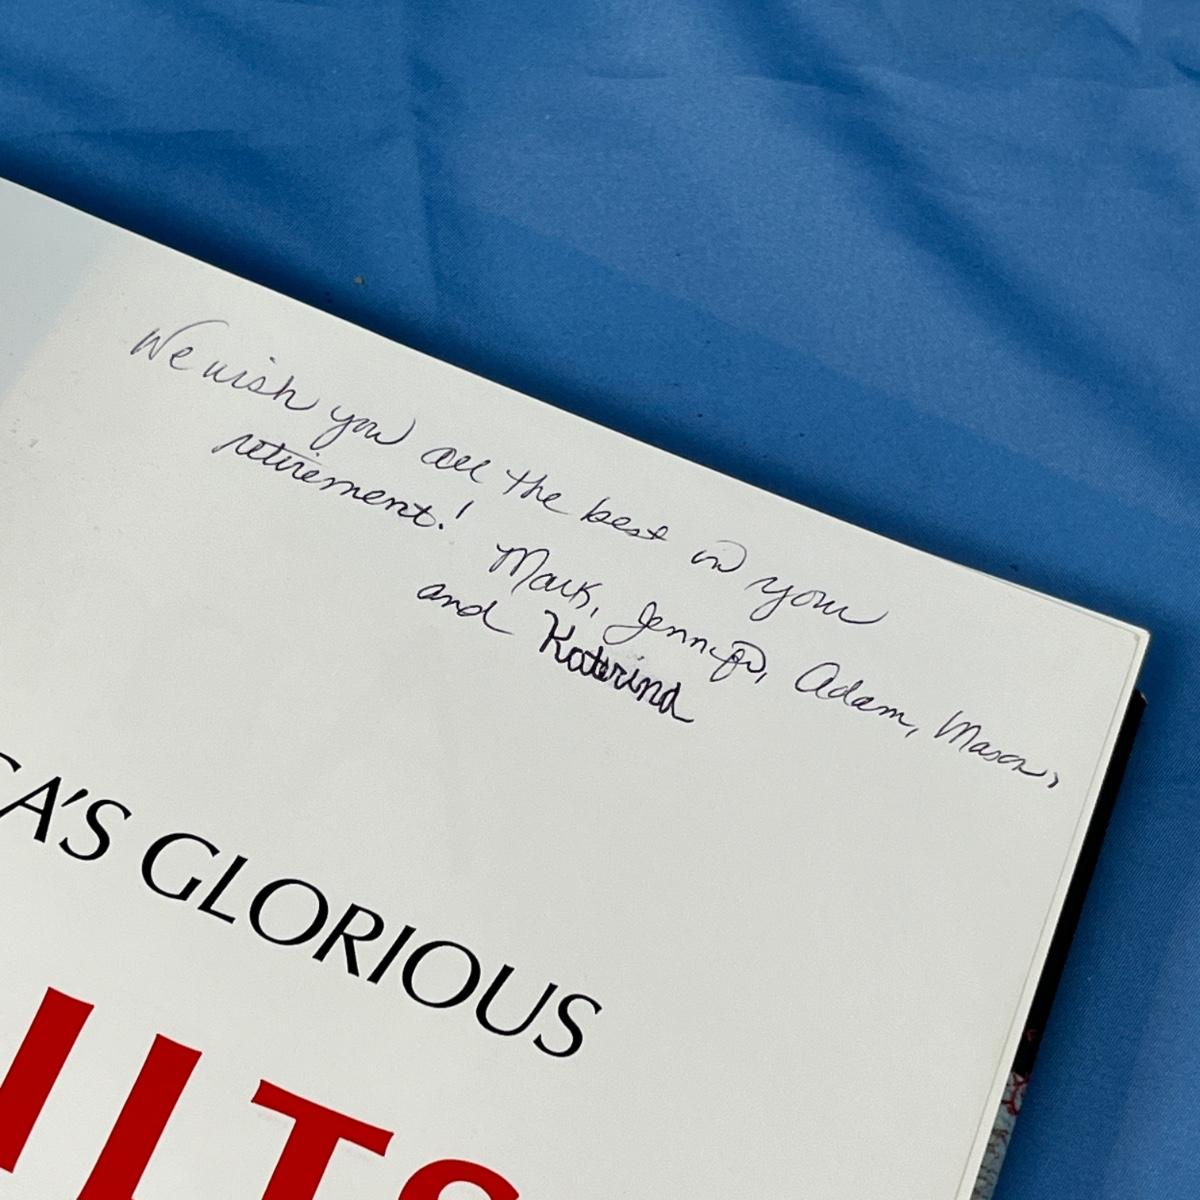 We wish you all the best in your
retirement!
Mark, Jennifer, Adam, Mason,
and Katerina
CA'S GLORIOUS
ILTS